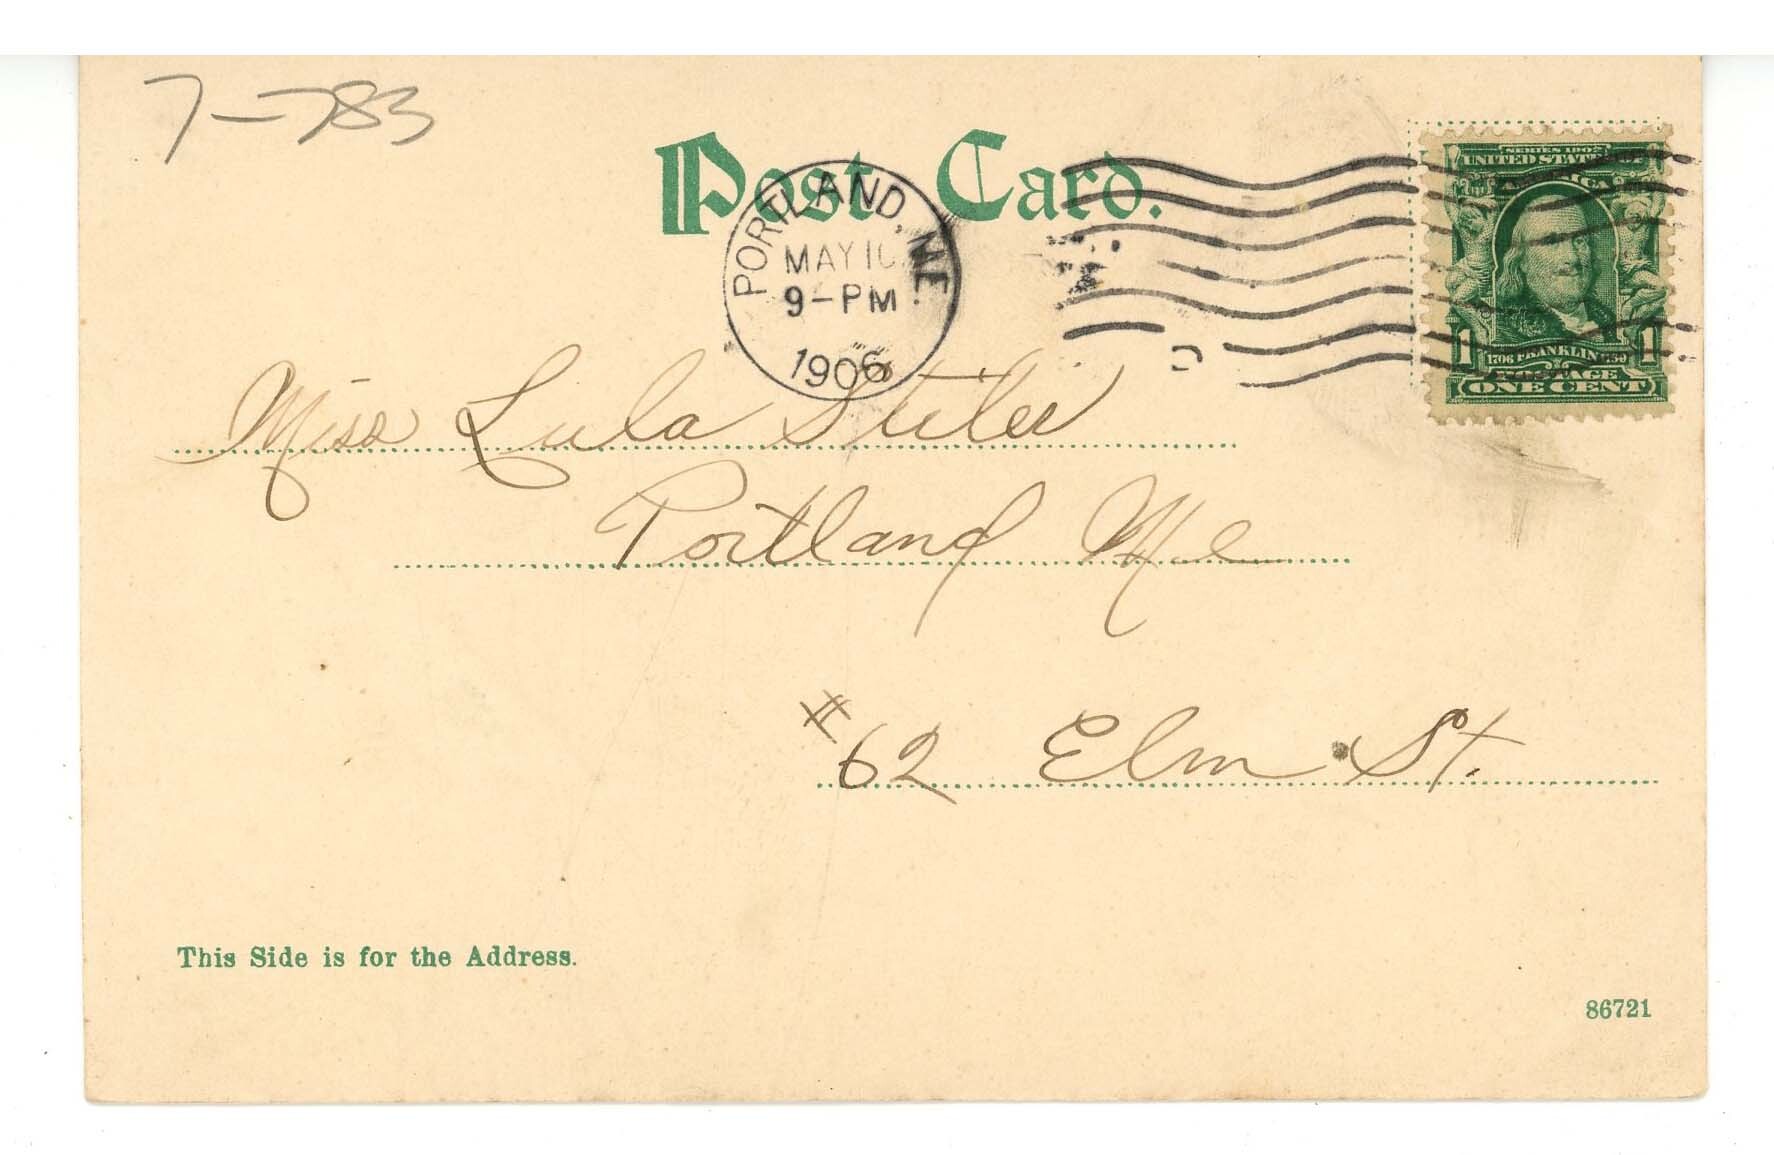 7-783
Post Card.
PORTLAND, ME.
MAY 10
9-PM
1906
SERIES 1902
UNITED STATES
AMERICA
1 1706 FRANKLIN 1790 1
POSTAGE
ONE CENT
Miss Lula Stiles
Portland Me
#62 Elm St.
This Side is for the Address.
86721